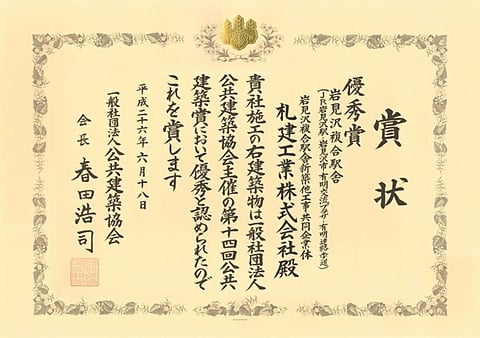 賞状
優秀賞
岩見沢複合駅舎
(JR岩見沢駅・岩見沢市有明交流プラザ・有明連絡歩道)
岩見沢複合駅舎新築他工事共同企業体
札建工業株式会社殿
貴社施工の右建築物は一般社団法人
公共建築協会主催の第十四回公共
建築賞において優秀と認められたので
これを賞します
平成二十六年六月十八日
一般社団法人公共建築協会
会長 春田浩司